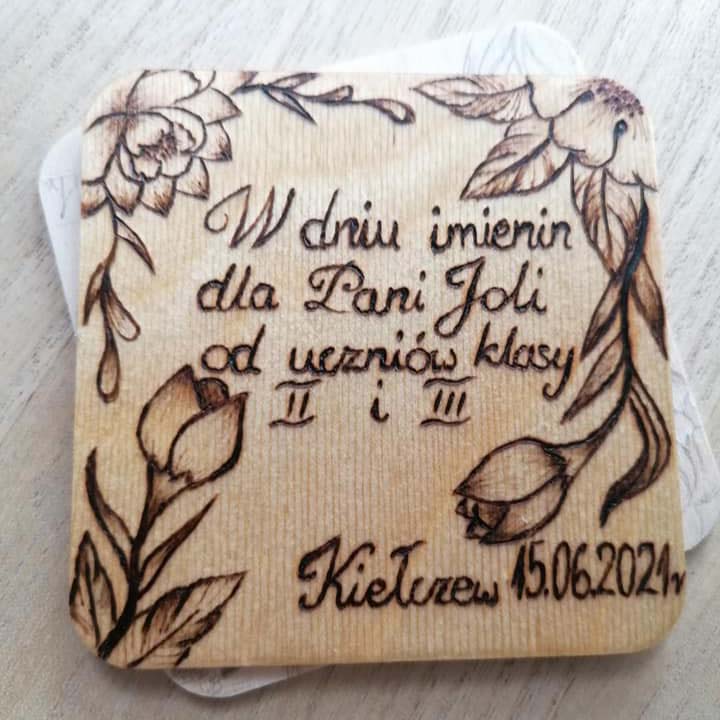 W dniu imienin
dla Pani Joli
od uczniów klasy
II i III
Kiełczew 15.06.2021r